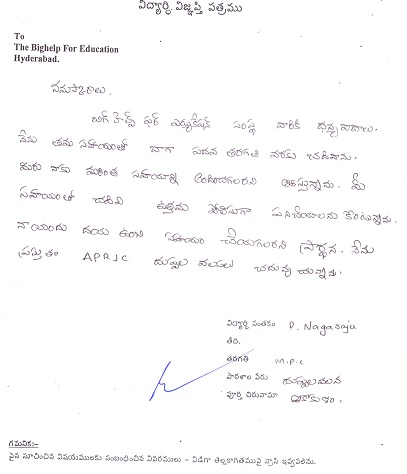 విద్యార్థి విజ్ఞప్తి పత్రము
To
The Bighelp For Education
Hyderabad.
నమస్కారాలు.
బిగ్ హెల్ప్ ఫర్ ఎడ్యుకేషన్ సంస్థ వారికి ధన్యవాదాలు.
నేను తమ సహాయంతో బాగా పదవ తరగతి వరకు చదివాను.
మీరు నాకు మరింత సహాయాన్ని అందించగలరని ఆశిస్తున్నాను. మీ
సహాయంతో చదివి ఉత్తమ పౌరుడుగా పనిచేయాలను కుంటున్నాను.
నాయందు దయ ఉంచి సహాయం చేయగలరని ప్రార్థన. నేను
ప్రస్తుతం APRJC చదువు చున్నాను.
విద్యార్థి సంతకం P. Nagaraju
తేది.
తరగతి M.P.C
పాఠశాల పేరు
పూర్తి చిరునామా
గమనిక:-
పైన సూచించిన విషయములకు సంబంధించిన వివరములు - విడిగా తెల్లకాగితముపై వ్రాసి ఇవ్వవలెను.